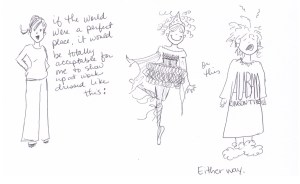 if the world
were a perfect
place, it would
be totally
acceptable for
me to show
up at work
dressed like
this:
Or
this
ALABAMA
Either way.